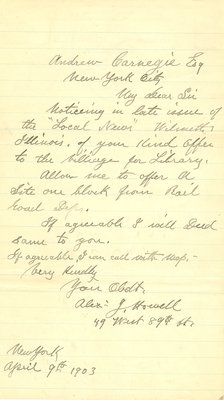 Andrew Carnegie Esq
New York City
My Dear Sir
Noticing in late issue of
the "Local News" Wilmette,
Illinois. of your Kind Offer
to the Village for Library.
Allow me to offer A
Site one block from Rail
Road Depo.
If agreeable I will Deed
same to you.
If agreeable I can call with Map,-
Very Kindly
Your Obdt.
Alex- J. Howell
49 West 89th St.
New York
April 9th 1903